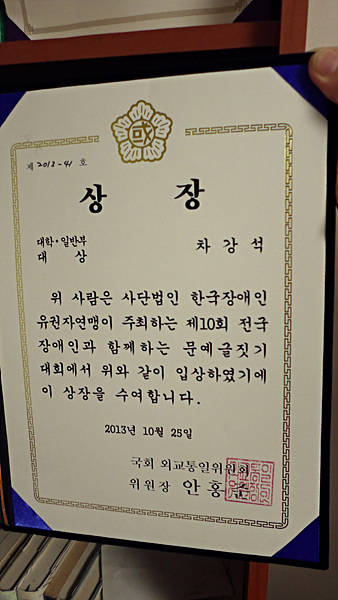 제 2013-41 호
상 장
대학·일반부
대 상
차 강 석
위 사람은 사단법인 한국장애인
유권자연맹이 주최하는 제10회 전국
장애인과 함께하는 문예글짓기
대회에서 위와 같이 입상하였기에
이 상장을 수여합니다.
2013년 10월 25일
국회 외교통일위원회
위원장 안 홍 준